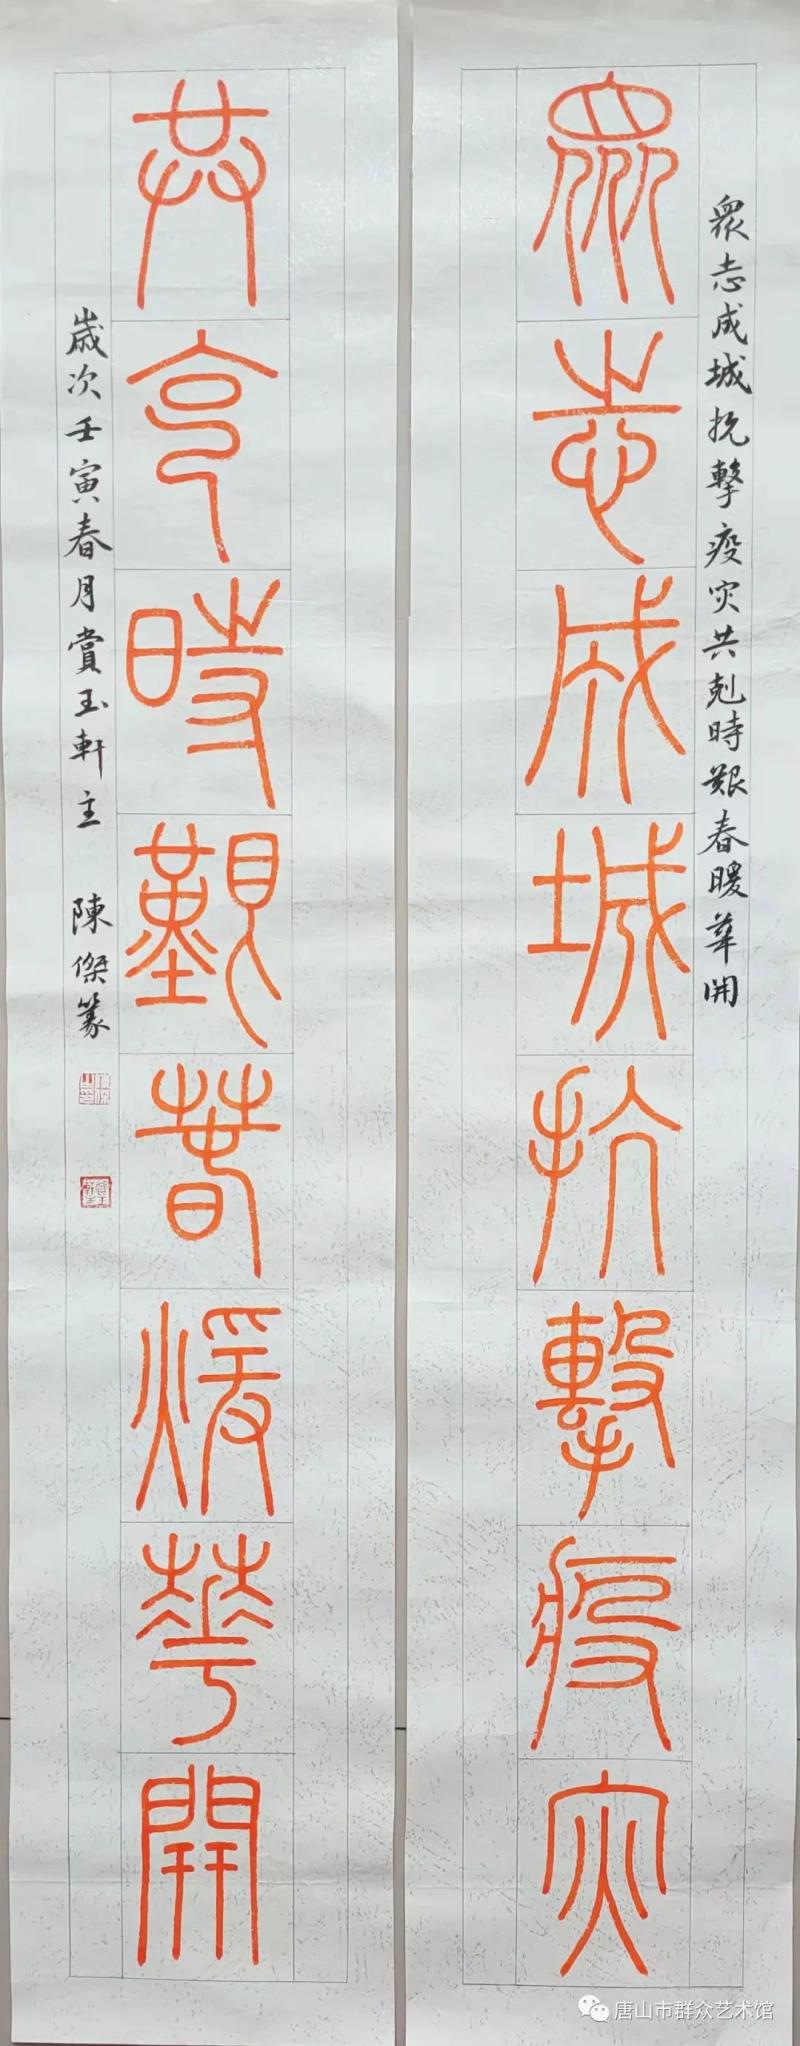 眾志成城抗擊疫灾共剋時艱春暖華開
眾志成城抗擊疫灾
共克時艱春煖華開
歲次壬寅春月賞玉軒主 陳傑篆
唐山市群众艺术馆